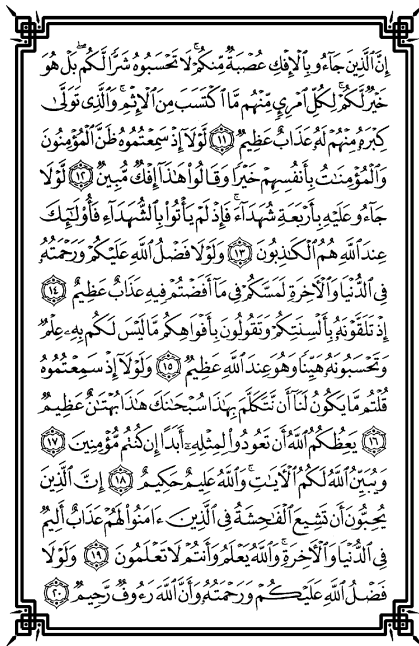 إِنَّ ٱلَّذِينَ جَآءُو بِٱلْإِفْكِ عُصْبَةٌ مِّنكُمْ ۚ لَا تَحْسَبُوهُ شَرًّا لَّكُم ۖ بَلْ هُوَ
خَيْرٌ لَّكُمْ ۚ لِكُلِّ ٱمْرِئٍ مِّنْهُم مَّا ٱكْتَسَبَ مِنَ ٱلْإِثْمِ ۚ وَٱلَّذِى تَوَلَّىٰ
كِبْرَهُۥ مِنْهُمْ لَهُۥ عَذَابٌ عَظِيمٌ ١١ لَّوْلَآ إِذْ سَمِعْتُمُوهُ ظَنَّ ٱلْمُؤْمِنُونَ
وَٱلْمُؤْمِنَٰتُ بِأَنفُسِهِمْ خَيْرًا وَقَالُوا۟ هَٰذَآ إِفْكٌ مُّبِينٌ ١٢ لَّوْلَا
جَآءُو عَلَيْهِ بِأَرْبَعَةِ شُهَدَآءَ ۚ فَإِذْ لَمْ يَأْتُوا۟ بِٱلشُّهَدَآءِ فَأُو۟لَٰٓئِكَ
عِندَ ٱللَّهِ هُمُ ٱلْكَٰذِبُونَ ١٣ وَلَوْلَا فَضْلُ ٱللَّهِ عَلَيْكُمْ وَرَحْمَتُهُۥ
فِى ٱلدُّنْيَا وَٱلْءَاخِرَةِ لَمَسَّكُمْ فِى مَآ أَفَضْتُمْ فِيهِ عَذَابٌ عَظِيمٌ ١٤
إِذْ تَلَقَّوْنَهُۥ بِأَلْسِنَتِكُمْ وَتَقُولُونَ بِأَفْوَاهِكُم مَّا لَيْسَ لَكُم بِهِۦ عِلْمٌ
وَتَحْسَبُونَهُۥ هَيِّنًا وَهُوَ عِندَ ٱللَّهِ عَظِيمٌ ١٥ وَلَوْلَآ إِذْ سَمِعْتُمُوهُ
قُلْتُم مَّا يَكُونُ لَنَآ أَن نَّتَكَلَّمَ بِهَٰذَا سُبْحَٰنَكَ هَٰذَا بُهْتَٰنٌ عَظِيمٌ
١٦ يَعِظُكُمُ ٱللَّهُ أَن تَعُودُوا۟ لِمِثْلِهِۦٓ أَبَدًا إِن كُنتُم مُّؤْمِنِينَ ١٧
وَيُبَيِّنُ ٱللَّهُ لَكُمُ ٱلْءَايَٰتِ ۚ وَٱللَّهُ عَلِيمٌ حَكِيمٌ ١٨ إِنَّ ٱلَّذِينَ
يُحِبُّونَ أَن تَشِيعَ ٱلْفَٰحِشَةُ فِى ٱلَّذِينَ ءَامَنُوا۟ لَهُمْ عَذَابٌ أَلِيمٌ
فِى ٱلدُّنْيَا وَٱلْءَاخِرَةِ ۚ وَٱللَّهُ يَعْلَمُ وَأَنتُمْ لَا تَعْلَمُونَ ١٩ وَلَوْلَا
فَضْلُ ٱللَّهِ عَلَيْكُمْ وَرَحْمَتُهُۥ وَأَنَّ ٱللَّهَ رَءُوفٌ رَّحِيمٌ ٢٠